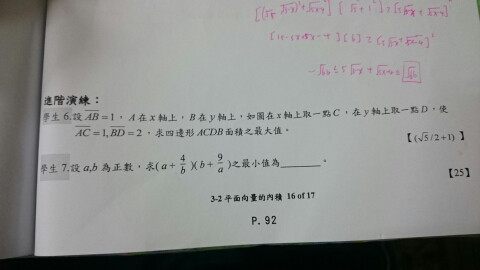 進階演練：
學生 6.設 AB=1，A在x軸上，B在y軸上，如圖在x軸上取一點C，在y軸上取一點D，使
AC=1,BD=2，求四邊形ACDB面積之最大值。
【(√5/2+1)】
學生 7.設a,b為正數，求(a+4/b)(b+9/a)之最小值為______。
【25】
3-2 平面向量的內積 16 of 17
P.92